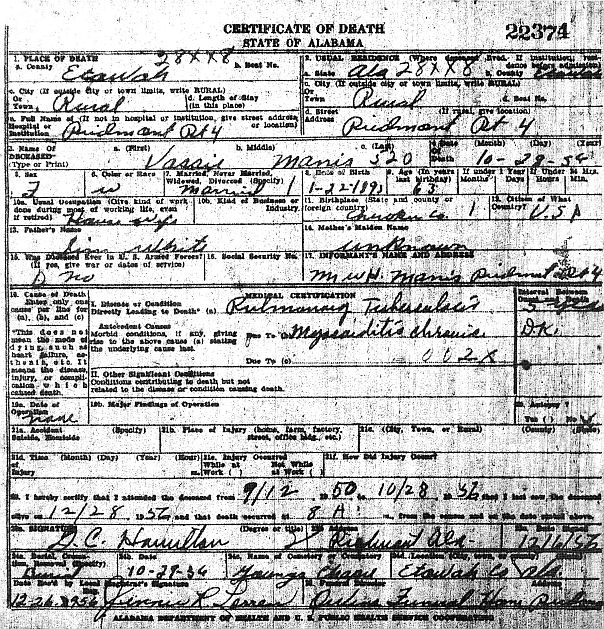 CERTIFICATE OF DEATH
STATE OF ALABAMA
22374
1. PLACE OF DEATH
a. County Etowah
28XX8 b. Beat No.
2. USUAL RESIDENCE (Where deceased lived. If institution, residence before admission)
a. State Ala 28XX8 b. County Etowah
c. City (If outside city or town limits, write RURAL)
Or Town Rural
d. Length of Stay (in this place)
c. City (If outside city or town limits, write RURAL)
Or Town Rural
d. Beat No.
e. Full Name of (If not in hospital or institution, give street address or location)
Hospital or Institution Piedmont Rt 4
d. Street Address (If rural, give location)
Piedmont Rt 4
3. Name Of DECEASED (Type or Print)
a. (First) b. (Middle) Manis c. (Last) 520
4. Date Of Death (Month) (Day) (Year)
10-28-56
5. Sex F
6. Color or Race w
7. Married, Never Married, Widowed, Divorced (Specify) Married 1
8. Date of Birth 1-22-1893
9. Age (in years last birthday) 63
If under 1 Year Months Days
If Under 24 Hrs. Hours Min.
10a. Usual Occupation (Give kind of work done during most of working life, even if retired) House wife
10b. Kind of Business or Industry
11. Birthplace (State or foreign country) Cherokee Co 1
12. Citizen of What Country? U.S.A
13. Father's Name White
14. Mother's Maiden Name
unknown
15. Was Deceased Ever in U. S. Armed Forces?
(If yes, give war or dates of service)
No
16. Social Security No.
17. INFORMANT'S NAME AND ADDRESS
Manis Piedmont Rt 4
18. Cause of Death
Enter only one cause per line for (a), (b), and (c)
MEDICAL CERTIFICATION
Interval Between Onset and Death
I. Disease or Condition
Directly Leading to Death* (a) Pulmonary Tuberculosis
*This does not mean the mode of dying, such as heart failure, asthenia, etc. It means the disease, injury, or complication which caused death.
Antecedent Causes
Morbid conditions, if any, giving rise to the above cause (a) stating the underlying cause last.
Due To (b) Myocarditis chronic DK.
Due To (c) 002X
II. Other Significant Conditions
Conditions contributing to death but not
related to the disease or condition causing death.
19a. Date of Operation none
19b. Major Findings of Operation
20. Autopsy?
Yes ( ) No
21a. Accident (Specify)
Suicide, Homicide
21b. Place of Injury (home, farm, factory, street, office bldg., etc.)
21c. (City, Town, or Rural) (County) (State)
21d. Time (Month) (Day) (Year) (Hour)
of Injury
21e. Injury Occurred
While at Work ( ) Not While at Work ( )
21f. How Did Injury Occur?
22. I hereby certify that I attended the deceased from 9/12 1950 to 10/28 1956 that I last saw the deceased
alive on 12/28 1956, and that death occurred at 8 A. m., from the causes and on the date stated above.
23a. SIGNATURE (Degree or title)
Hamilton
23b. Address
Piedmont Ala.
23c. Date Signed
24b. Date
10-29-56
24c. Name of Cemetery or Crematory
Youngs Chapel
24d. Location (City, town, or county)
Etowah Co Ala
Date Rec'd by Local Registrar's Signature
12-26-1956
25. Funeral Director Address
Funeral Home Piedmont
ALABAMA DEPARTMENT OF HEALTH AND U. S. PUBLIC HEALTH SERVICE COOPERATING